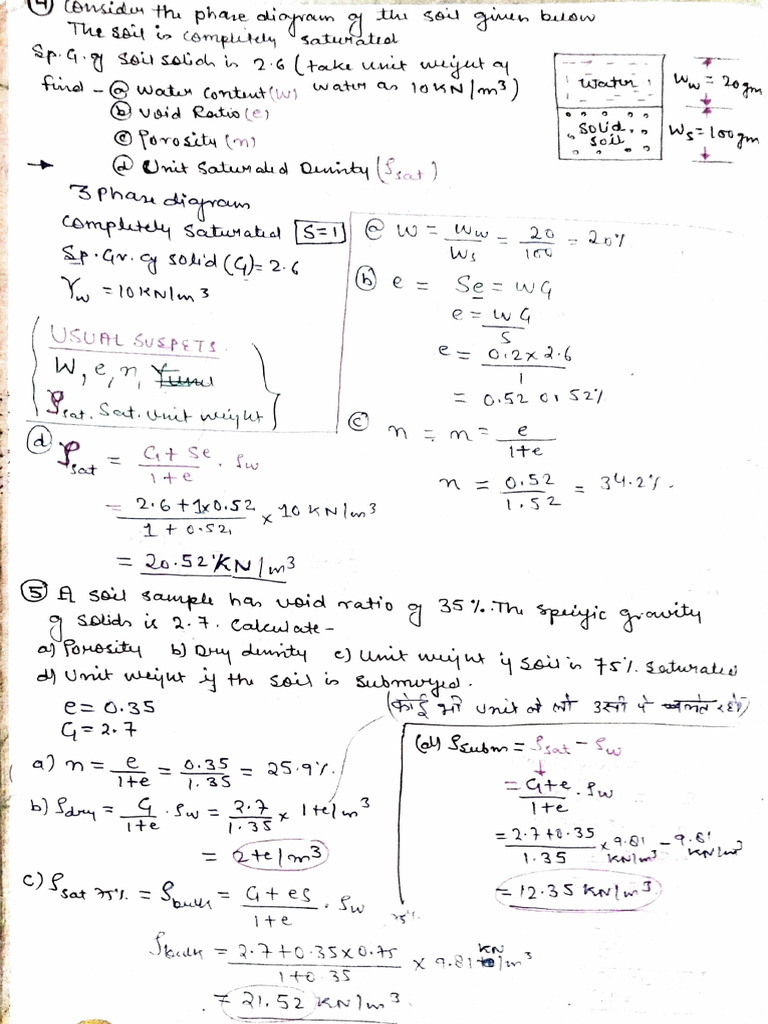 ④ Consider the phase diagram of the soil given below
The soil is completely saturated
Sp.G. of soil solids is 2.6 (take unit weight of
water as 10KN/m³)
find - ⓐ Water Content (W)
ⓑ Void Ratio (e)
ⓒ Porosity (n)
→ ⓓ Unit Saturated Density (ρsat)
Water
Ww = 20gm
Solid
soil
Ws = 100gm
3 Phase diagram
Completely Saturated S=1
Sp. Gr. of solid (G) = 2.6
γw = 10KN/m³
USUAL SUSPETS.
W, e, n,
ρsat. Sat. Unit weight
ⓐ W = Ww/Ws = 20/100 = 20%
ⓑ e = Se = WG
e = WG/S
e = 0.2x2.6/1
= 0.52 or 52%
ⓒ n = n = e/1+e
n = 0.52/1.52 = 34.2%.
ⓓ ρsat = G+Se/1+e . ρw
= 2.6+1x0.52/1+0.52 x 10KN/m³
= 20.52 KN/m³
⑤ A soil sample has void ratio of 35%. The specific gravity
of solids is 2.7. Calculate -
a) Porosity b) Dry density c) Unit weight if soil is 75% saturated
d) Unit weight if the soil is submerged.
e = 0.35
G = 2.7
(कोई भी unit ले लो उसी पे
a) n = e/1+e = 0.35/1.35 = 25.9%.
b) ρdry = G/1+e . ρw = 2.7/1.35 x 1te/m³
= 2te/m³
c) ρsat 75% = ρbulk = G+eS/1+e . ρw
75%
ρbulk = 2.7+0.35x0.75/1+0.35 x 9.81 KN/m³
= 21.52 KN/m³.
(d) ρsubm = ρsat - ρw
= G+e/1+e . ρw
= 2.7+0.35/1.35 x 9.81 KN/m³ - 9.81 KN/m³
= 12.35 KN/m³